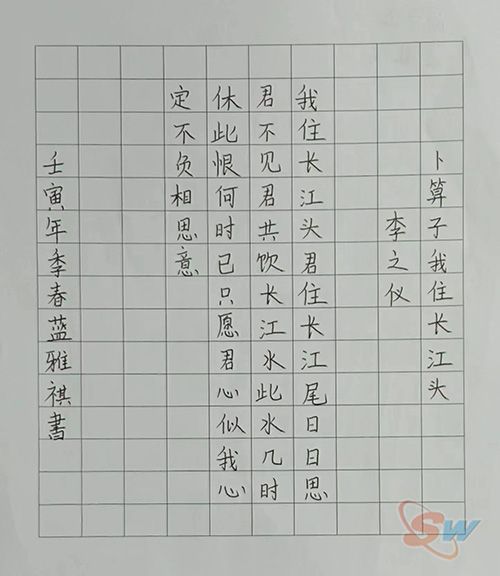 卜算子我住长江头
李之仪
我住长江头君住长江尾日日思
君不见君共饮长江水此水几时
休此恨何时已只愿君心似我心
定不负相思意
壬寅年季春蓝雅祺書
SW